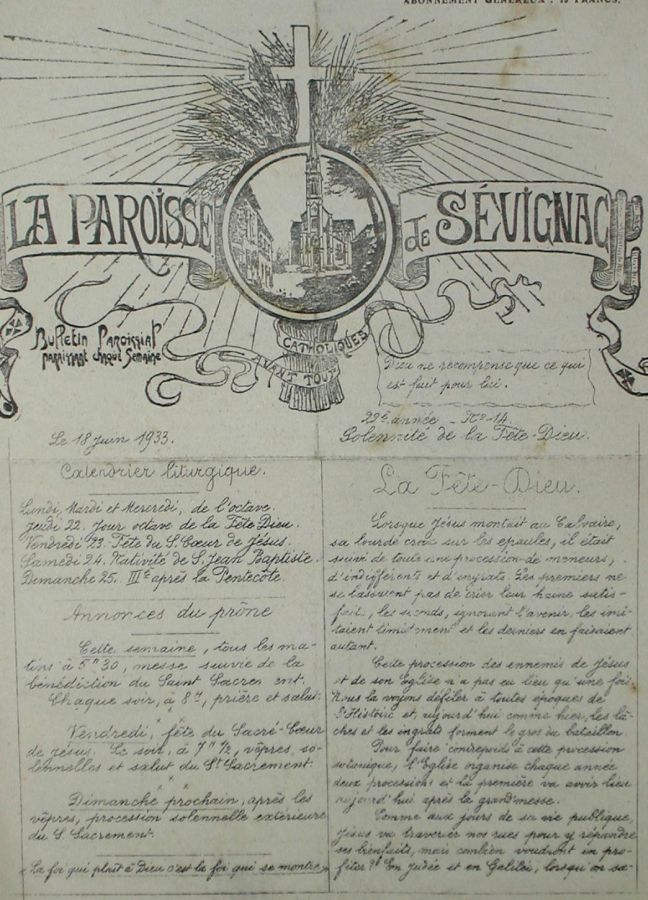 ABONNEMENT GÉNÉREUX : 10 FRANCS.
LA PAROISSE
de SÉVIGNAC
Bulletin Paroissial
paraissant chaque Semaine
CATHOLIQUES
AVANT TOUT
Dieu ne récompense que ce qui
est fait pour lui.
Le 18 Juin 1933.
22e année - No 14.
Solennité de la Fête-Dieu.
Calendrier liturgique.
Lundi, Mardi et Mercredi, de l'octave.
Jeudi 22. Jour octave de la Fête Dieu.
Vendredi 23. Fête du S. Cœur de Jésus.
Samedi 24. Nativité de S. Jean Baptiste.
Dimanche 25. IIIe après la Pentecôte.
Annonces du prône
Cette semaine, tous les ma-
tins à 5h 30, messe suivie de la
bénédiction du Saint Sacrement.
Chaque soir, à 8h, prière et salut.
Vendredi, fête du Sacré-Cœur
de Jésus. Le soir, à 7h 1/2, vêpres so-
lennelles et salut du St Sacrement.
Dimanche prochain, après les
vêpres, procession solennelle extérieure
du S. Sacrement.
"La foi qui plaît à Dieu c'est la foi qui se montre"
La Fête-Dieu.
Lorsque Jésus montait au Calvaire,
sa lourde croix sur les épaules, il était
suivi de toute une procession de meneurs,
d'indifférents et d'ingrats. Les premiers ne
se lassaient pas de crier leur haine satis-
faite, les seconds, ignorant l'avenir, les imi-
taient timidement et les derniers en faisaient
autant.
Cette procession des ennemis de Jésus
et de son Eglise n'a pas eu lieu qu'une fois.
Nous la voyons défiler à toutes époques de
l'Histoire et, aujourd'hui comme hier, les lâ-
ches et les ingrats forment le gros du bataillon.
Pour faire contrepoids à cette procession
satanique, l'Eglise organise chaque année
deux processions et la première va avoir lieu
aujourd'hui après la grand'messe.
Comme aux jours de sa vie publique,
Jésus va traverser nos rues pour y répandre
ses bienfaits, mais combien voudront en pro-
fiter? En Judée et en Galilée, lorsqu'on sa-